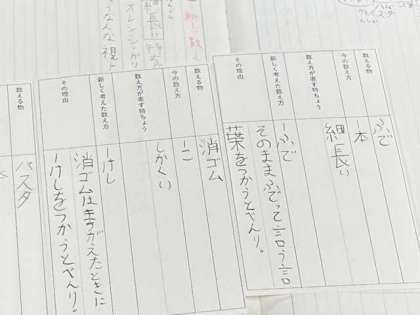 数える物
ふで
今の数え方
本
数え方が表す特ちょう
細長い
新しく考えた数え方
一ふで
その理由
そのままふでって言う言
葉をつかうとべんり。
数える物
消ゴム
今の数え方
一こ
数え方が表す特ちょう
しかくい
新しく考えた数え方
一けし
その理由
消ゴムはまちがえたときに
一けしをつかうとべんり!
数える物
パスタ